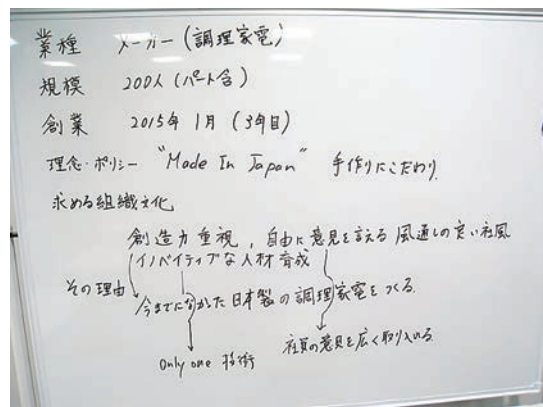 業種 メーカー(調理家電)
規模 200人(パート含)
創業 2015年1月(3年目)
理念・ポリシー "Made In Japan" 手作りにこだわり
求める組織文化
創造力重視,自由に意見を言える風通しの良い社風
イノベイティブな人材育成
その理由
今までになかった日本製の調理家電をつくる.
Only one 技術
社員の意見を広く取り入れる